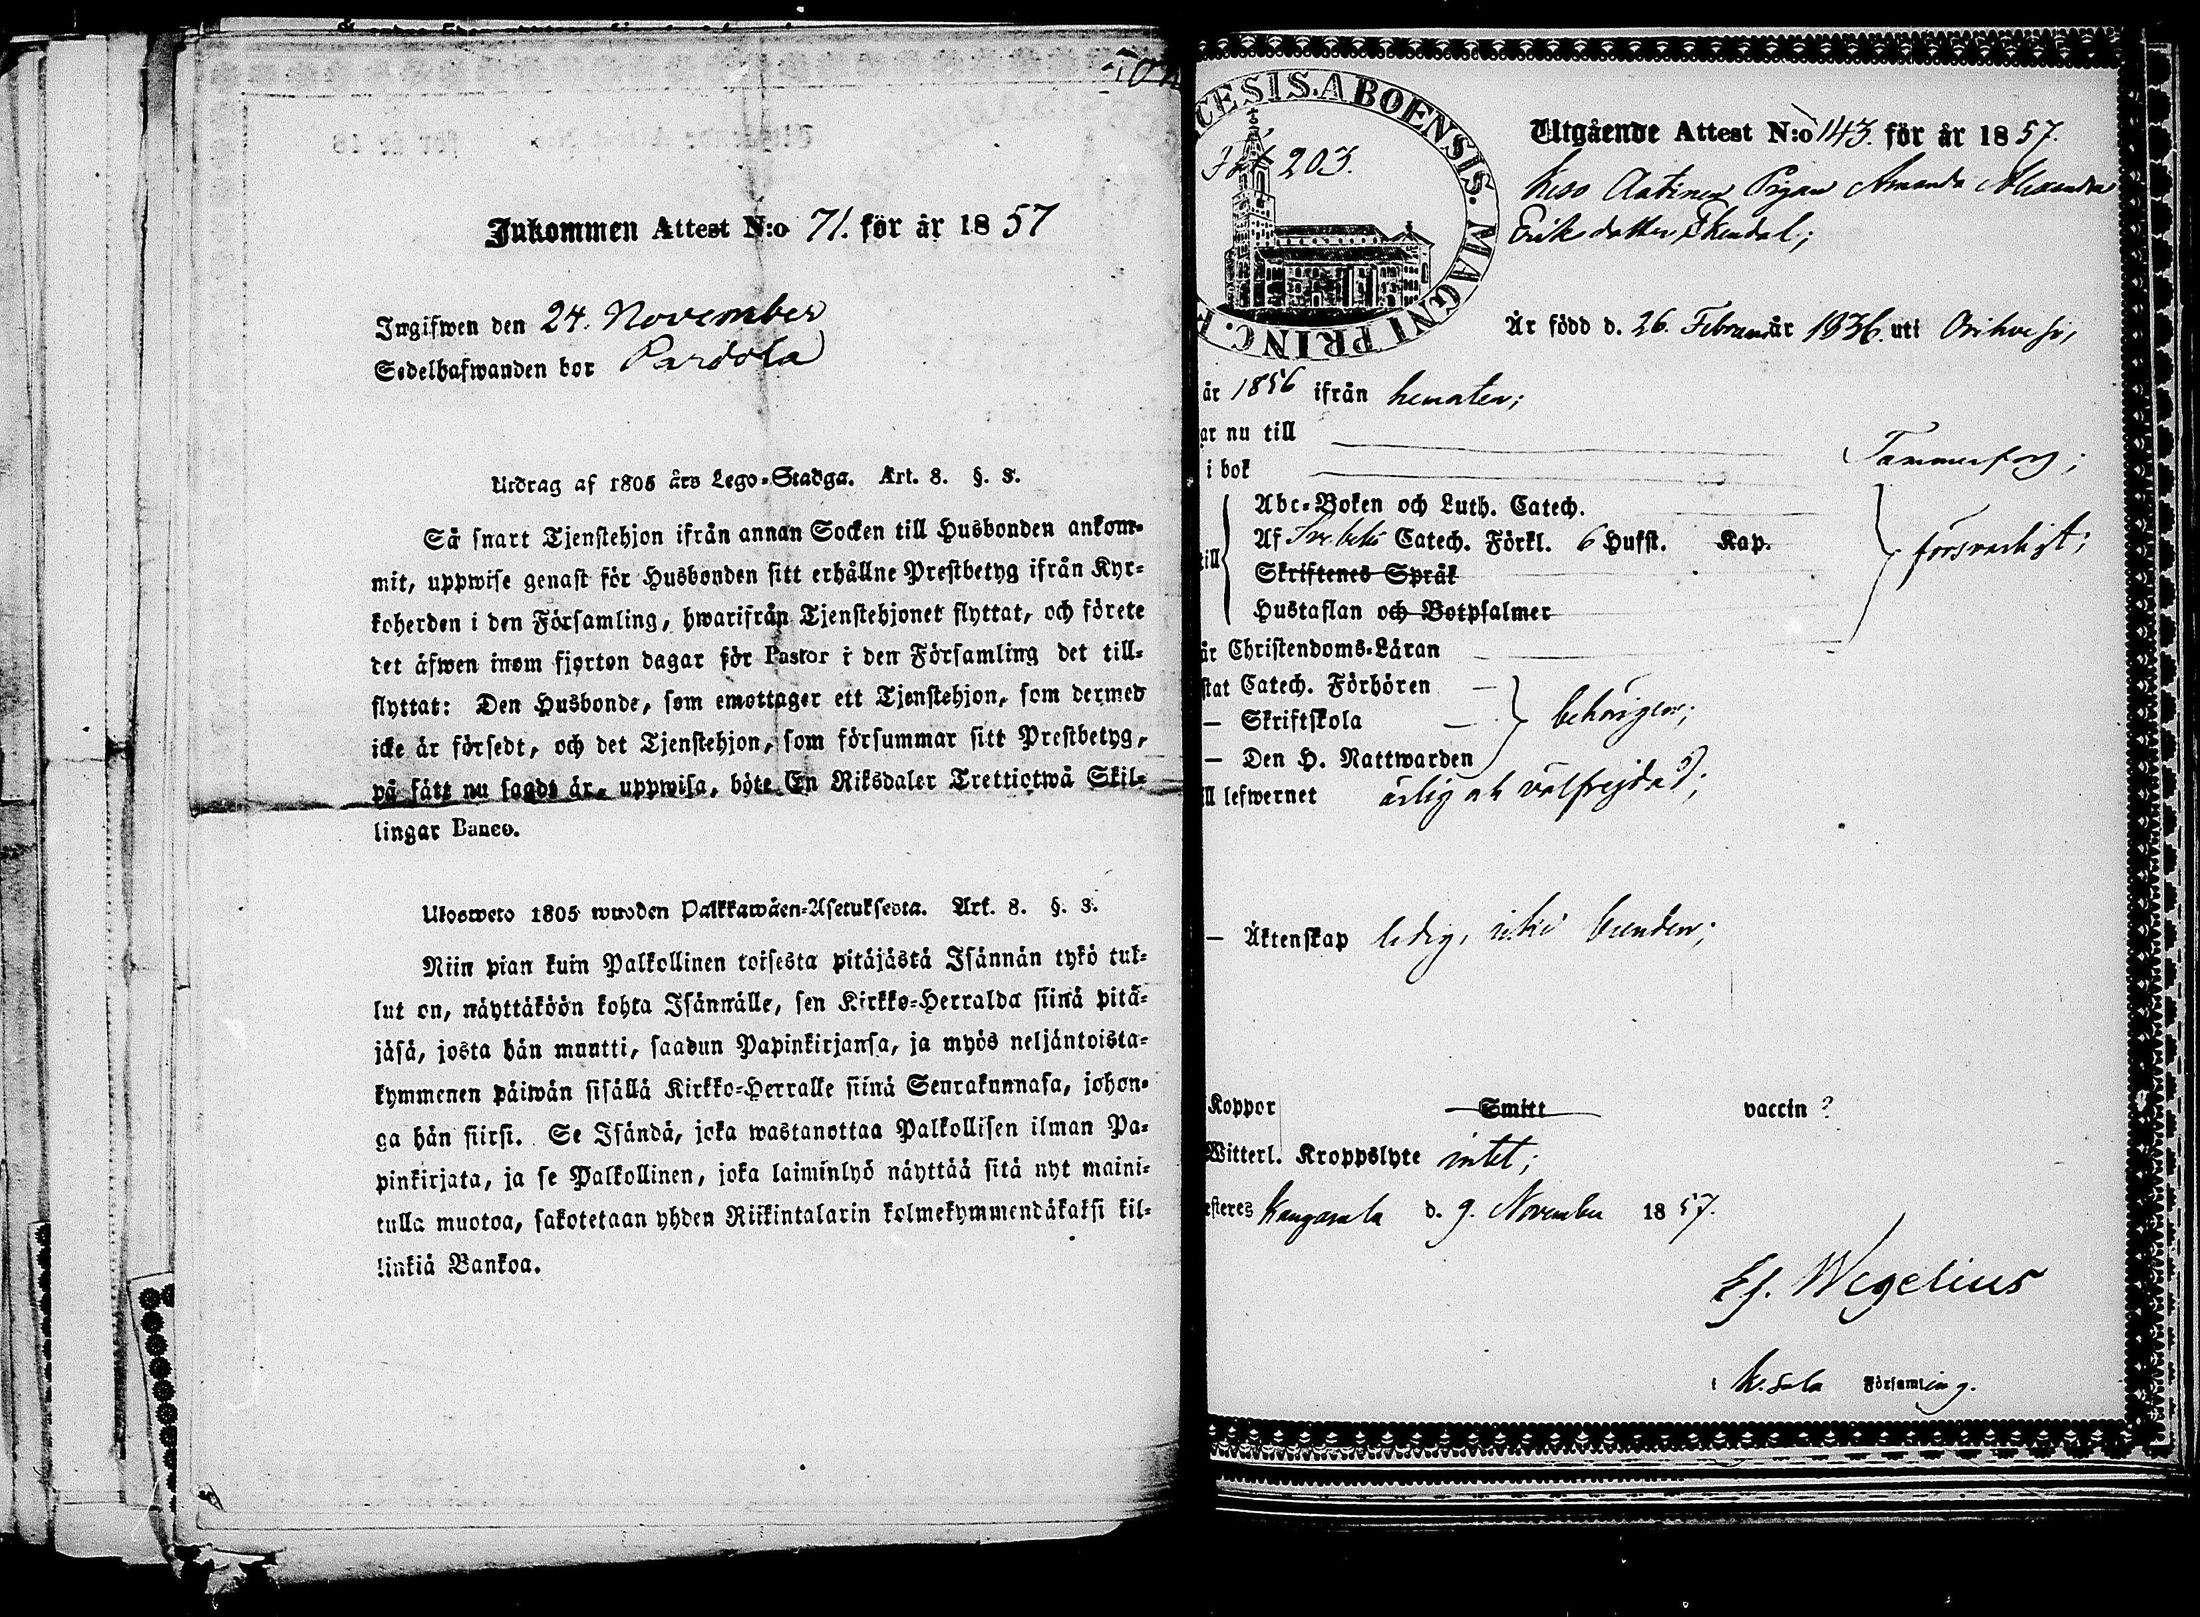 Inkommen Attest N:o 71. för år 1857
Ingifwen den 24. November
Sedelhafwanden bor Pardola
Utdrag af 1805 års Lego-Stadga. Art. 8. §. 3.
Så snart Tjenstehjon ifrån annan Socken till Husbonden ankom-
mit, uppwise genast för Husbonden sitt erhållne Prestbetyg ifrån Kyr-
koherden i den Församling, hwarifrån Tjenstehjonet flyttat, och förete
det äfwen inom fjorton dagar för Pastor i den Församling det till-
flyttat: Den Husbonde, som emottager ett Tjenstehjon, som dermed
icke är försedt, och det Tjenstehjon, som försummar sitt Prestbetyg,
på sätt nu sagdt är, uppwisa, böte En Riksdaler Trettiotwå Skil-
lingar Banco.
Ulosweto 1805 wuoden Palkkawäen-Asetuksesta. Art. 8. §. 3.
Niin pian kuin Palkollinen toisesta pitäjästä Isännän tykö tul-
lut on, näyttäköön kohta Isännälle, sen Kirkko-Herralda siinä pitä-
jäsä, josta hän muutti, saadun Papinkirjansa, ja myös neljäntoista-
kymmenen päiwän sisällä Kirkko-Herralle siinä Seurakunnasa, johon-
ga hän siirsi. Se Isändä, joka wastanottaa Palkollisen ilman Pa-
pinkirjata, ja se Palkollinen, joka laiminlyö näyttää sitä nyt maini-
tulla muotoa, sakotetaan yhden Riikintalarin kolmekymmendäkaksi kil-
linkiä Bankoa.
CESIS. ABOENSIS. MAGNI PRINC. F
203.
Utgående Attest N:o 143. för år 1857.
Pigan Amanda Alexandra
Eriksdotter Ekendal;
Är född d. 26. Februari år 1836. uti Orihvesi,
år 1856 ifrån hemorten;
ar nu till Tammerfors;
i bok
Abc-Boken och Luth. Catech.
ill Af Svebelii Catech. Förkl. 6 Hufst. Kap. försvarligt;
Skriftenes Språk
Hustaflan och Botpsalmer
är Christendoms-Läran
stat Catech. Förhören
— Skriftskola behörigen;
— Den H. Nattwarden
ll lefwernet ärlig och välfrejdad;
— Äktenskap ledig, icke bunden;
Koppor Smitt vaccin?
Witterl. Kroppslyte intet;
esteres Kangasala d. 9. November 1857.
Ef. Wegelius
i K.sala Församling.